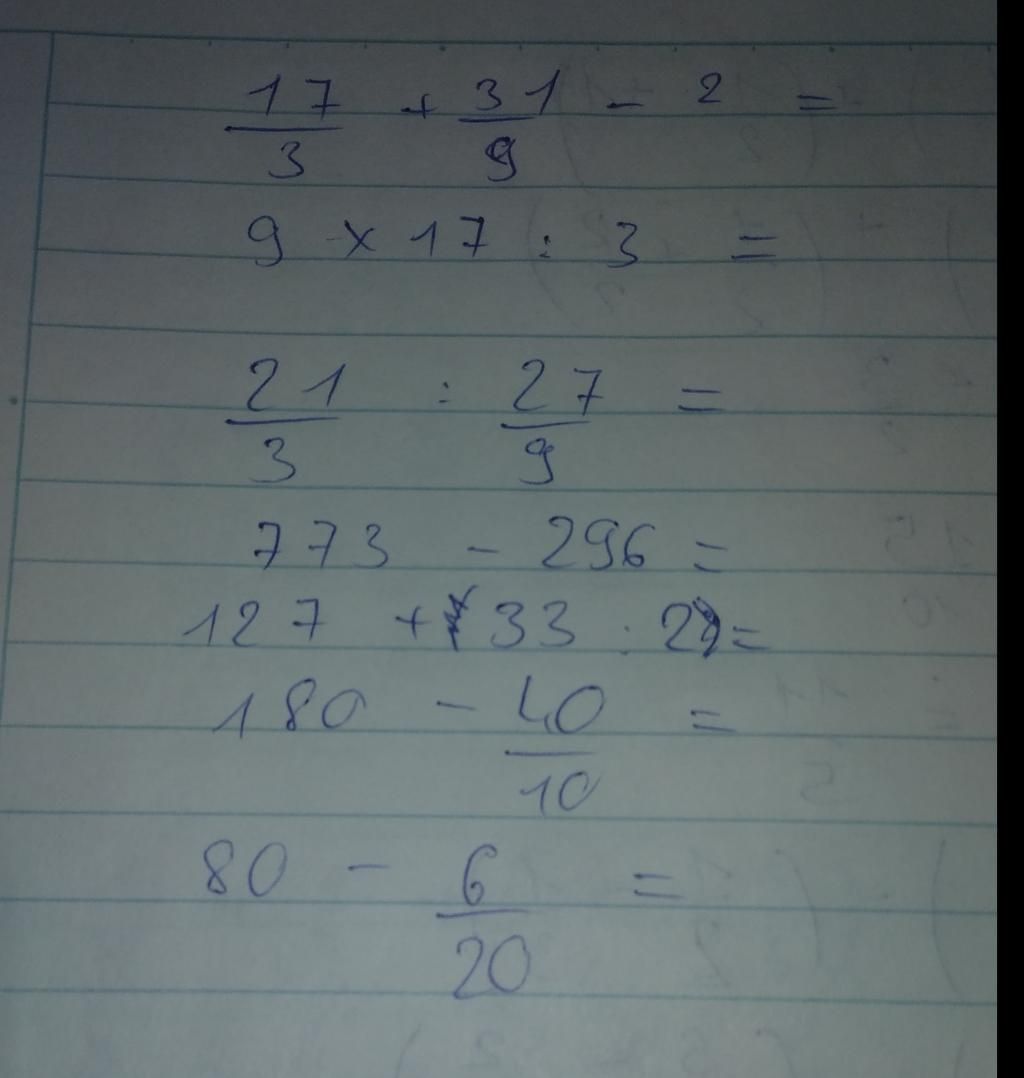 17/3 + 31/9 - 2 =
9 x 17 : 3 =
21/3 : 27/9 =
773 - 296 =
127 + 33 : 2 =
180 - 40/10 =
80 - 6/20 =